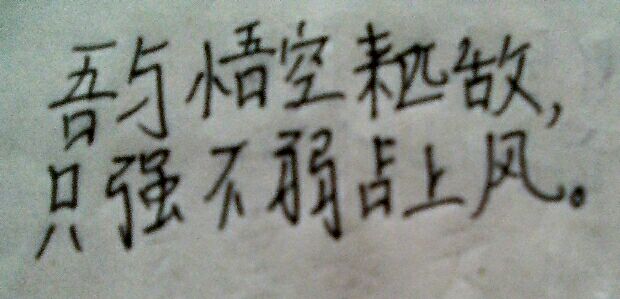 吾与悟空来匹敌,
只强不弱占上风。